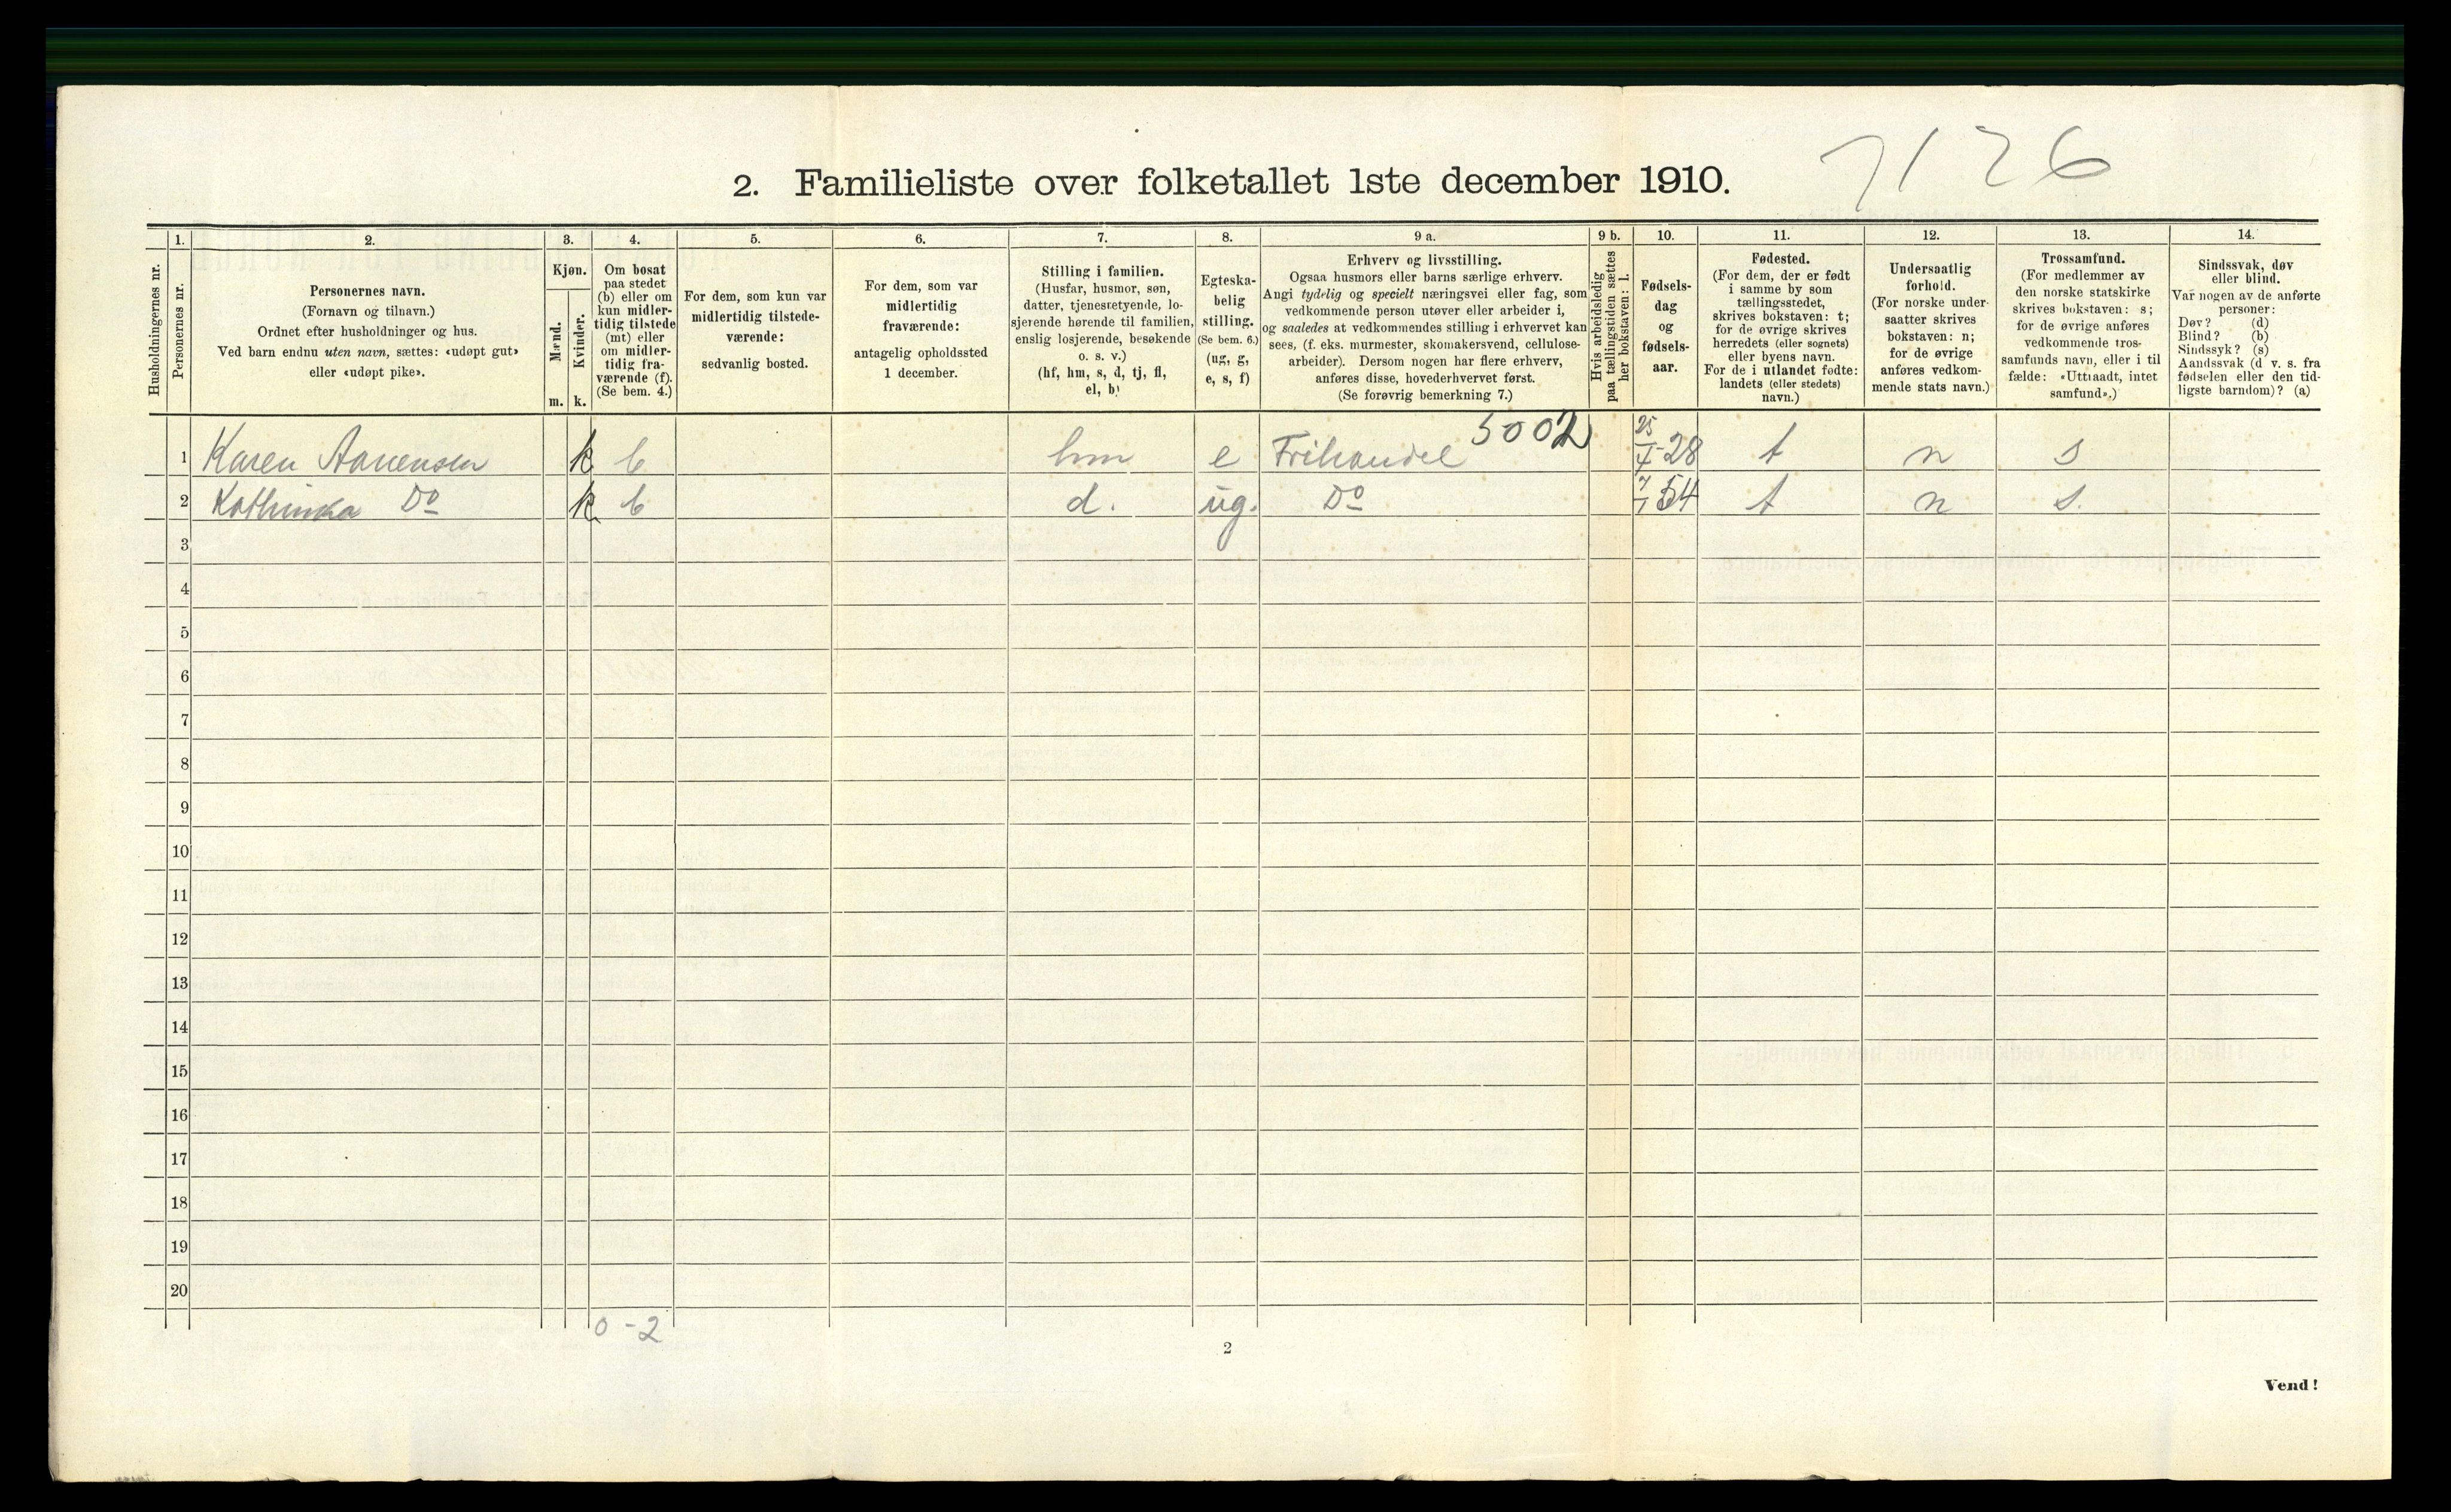 7126
2. Familieliste over folketallet 1ste december 1910.
Husholdningernes nr.
1.
Personernes nr.
2.
Personernes navn.
(Fornavn og tilnavn.)
Ordnet efter husholdninger og hus.
Ved barn endnu uten navn, sættes: «udøpt gut»
eller «udøpt pike».
3.
Kjøn.
Mænd.
m.
Kvinder.
k.
4.
Om bosat
paa stedet
(b) eller om
kun midler-
tidig tilstede
(mt) eller
om midler-
tidig fra-
værende (f).
(Se bem. 4.)
5.
For dem, som kun var
midlertidig tilstede-
værende:
sedvanlig bosted.
6.
For dem, som var
midlertidig
fraværende:
antagelig opholdssted
1 december.
7.
Stilling i familien.
(Husfar, husmor, søn,
datter, tjenestetyende, lo-
sjerende hørende til familien,
enslig losjerende, besøkende
o. s. v.)
(hf, hm, s, d, tj, fl,
el, b)
8.
Egteska-
belig
stilling.
(Se bem. 6.)
(ug, g,
e, s, f)
9 a.
Erhverv og livsstilling.
Ogsaa husmors eller barns særlige erhverv.
Angi tydelig og specielt næringsvei eller fag, som
vedkommende person utøver eller arbeider i,
og saaledes at vedkommendes stilling i erhvervet kan
sees, (f. eks. murmester, skomakersvend, cellulose-
arbeider). Dersom nogen har flere erhverv,
anføres disse, hovederhvervet først.
(Se forøvrig bemerkning 7.)
9 b.
Hvis arbeidsledig
paa tællingstiden sættes
her bokstaven: l.
10.
Fødsels-
dag
og
fødsels-
aar.
11.
Fødested.
(For dem, der er født
i samme by som
tællingsstedet,
skrives bokstaven: t;
for de øvrige skrives
herredets (eller sognets)
eller byens navn.
For de i utlandet fødte:
landets (eller stedets)
navn.)
12.
Undersaatlig
forhold.
(For norske under-
saatter skrives
bokstaven: n;
for de øvrige
anføres vedkom-
mende stats navn.)
13.
Trossamfund.
(For medlemmer av
den norske statskirke
skrives bokstaven: s;
for de øvrige anføres
vedkommende tros-
samfunds navn, eller i til
fælde: «Uttraadt, intet
samfund».)
14.
Sindssvak, døv
eller blind.
Var nogen av de anførte
personer:
Døv? (d)
Blind? (b)
Sindssyk? (s)
Aandssvak (d v. s. fra
fødselen eller den tid-
ligste barndom)? (a)
1 Karen Aanensen k b hm e Frihandel 5002 28 t n s
2 Kathinka Do k b d. ug. Do 54 t n s.
3
4
5
6
7
8
9
10
11
12
13
14
15
16
17
18
19
20
0 - 2
2
Vend!